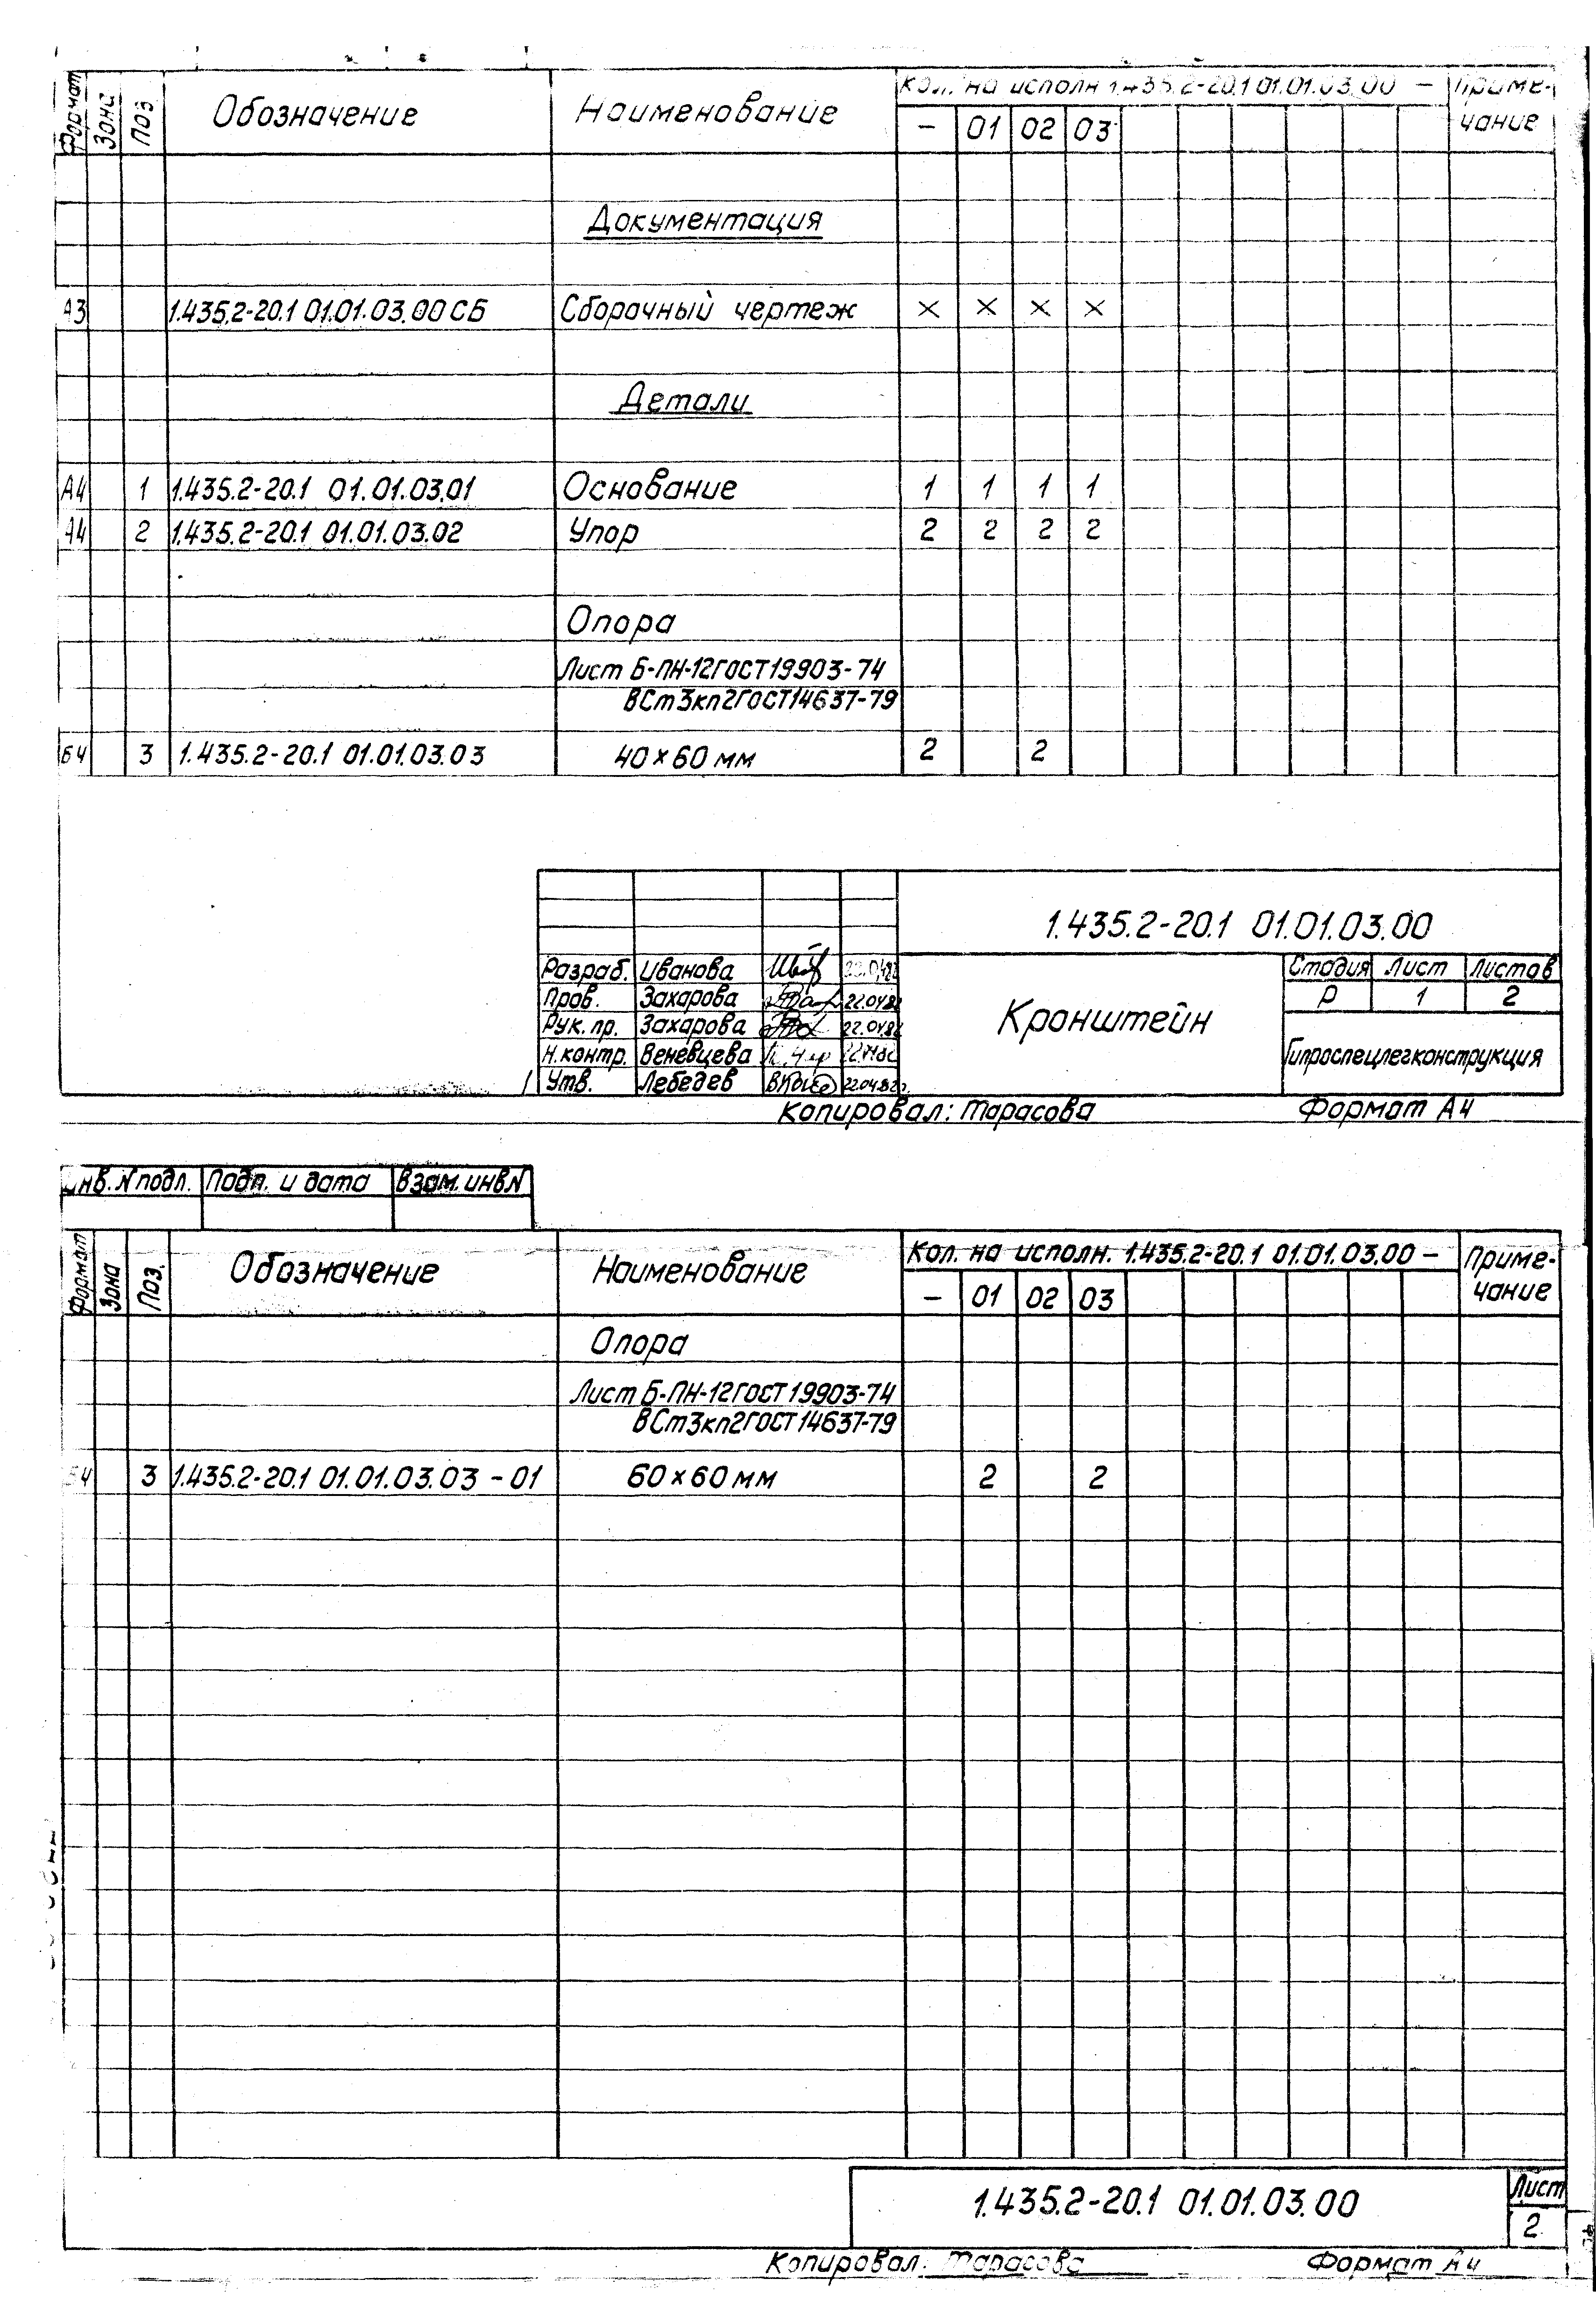 Формат Зона Поз Обозначение Наименование Кол. на исполн 1.435.2-20.1 01.01.03.00 – Приме-
– 01 02 03 чание
Документация
А3 1.435.2-20.1 01.01.03.00 СБ Сборочный чертеж × × × ×
Детали
А4 1 1.435.2-20.1 01.01.03.01 Основание 1 1 1 1
А4 2 1.435.2-20.1 01.01.03.02 Упор 2 2 2 2
Опора
Лист Б-ПН-12ГОСТ19903-74
ВСт3кп2ГОСТ14637-79
Б4 3 1.435.2-20.1 01.01.03.03 40×60 мм 2 2
1.435.2-20.1 01.01.03.00
Разраб. Иванова
Пров. Захарова 22.04.82
Рук. пр. Захарова 22.04.82
Н.контр. Веневцева
Утв. Лебедев 22.04.82
Кронштейн
Стадия Лист Листов
Р 1 2
Гипроспецлегконструкция
Копировал: Тарасова Формат А4
Инв. N подл. Подп. и дата Взам. инв N
Формат Зона Поз. Обозначение Наименование Кол. на исполн. 1.435.2-20.1 01.01.03.00 – Приме-
– 01 02 03 чание
Опора
Лист Б-ПН-12ГОСТ19903-74
ВСт3кп2ГОСТ14637-79
Б4 3 1.435.2-20.1 01.01.03.03 - 01 60×60 мм 2 2
1.435.2-20.1 01.01.03.00 Лист
2
Копировал: Тарасова Формат А4